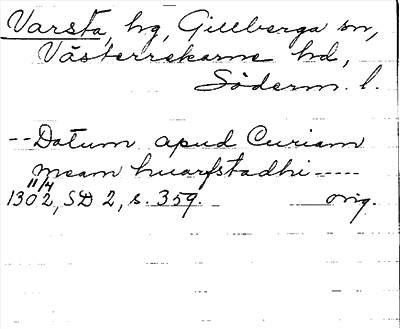 Varsta, hg, Gillberga sn,
Västerrekarne hd,
Söderm. l.
-- Datum apud Curiam
meam huarfstadhi -----
11/4
1302, SD 2, s. 359. orig.